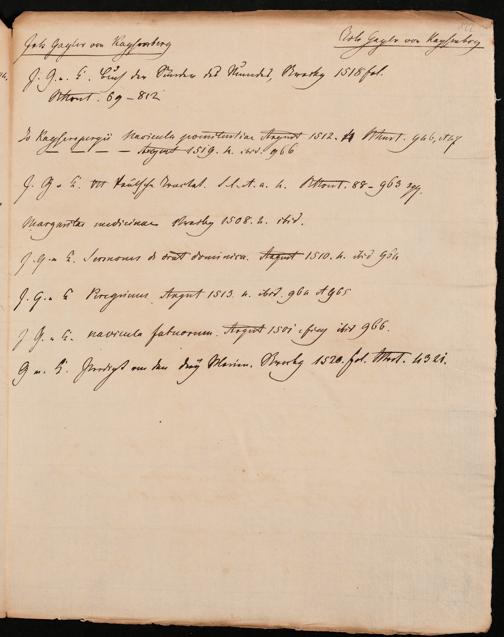 Joh Gayler von Kaysersberg
Joh Gayler von Kaysersberg
J. G. v. K. Buch der Sünden des Mundes, Strasbg 1518 fol.
69 – 812
Jo Kayserspergii Navicula poenitentiae August 1512. 4 966, 67
— — — — August 1519. 4. ibid. 966
J. G. v. K. Teutsche Tractat. S. l. et a. 4. 88 – 963 sqq.
Margarita medicinae Strasbg 1508. 4. ibid.
J. G. v. K. Sermones de orat dominica. August 1510. 4. ibid 964
J. G. v. K. Peregrinus. August 1513. 4. ibid. 964 et 965
J. G. v. K. Navicula fatuorum. August 1501. ibid 966.
G. v. K. Predigt von den drey Marien. Strasbg 1520. fol. 4321.